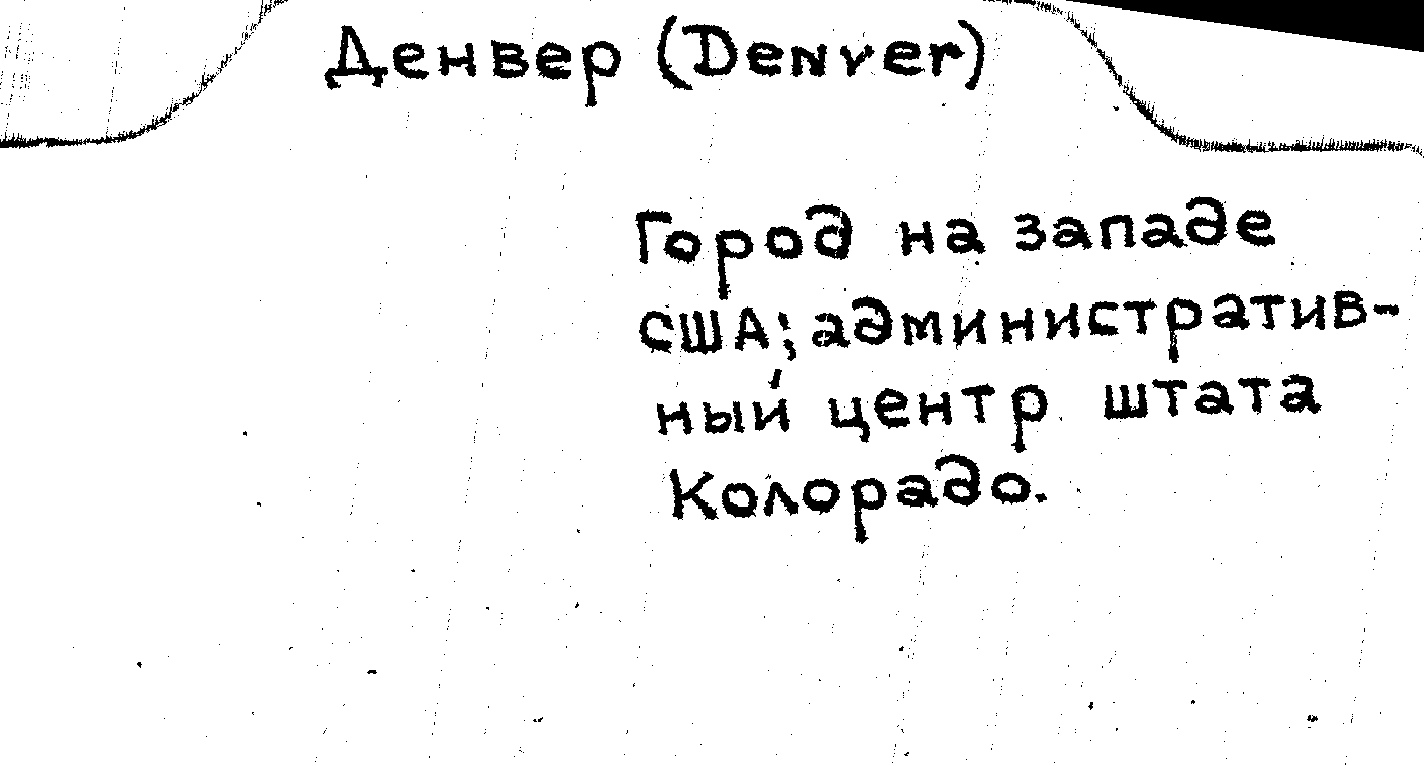 Денвер (Denver)
Город на западе
США; административ-
ный центр штата
Колорадо.